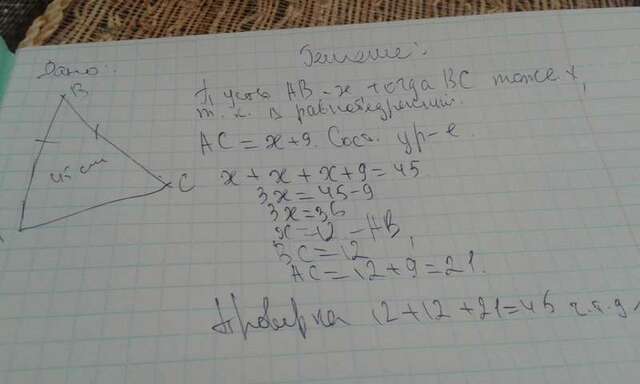 Дано:
Решение:
B
45 см
C
Пусть AB - x тогда BC тоже x,
т. к. в равнобедренный.
AC = x+9. Сост. ур-е.
x + x + x + 9 = 45
3x = 45 - 9
3x = 36
x = 12 - AB,
BC = 12
AC = 12 + 9 = 21.
Проверка 12 + 12 + 21 = 45 ч.т.д